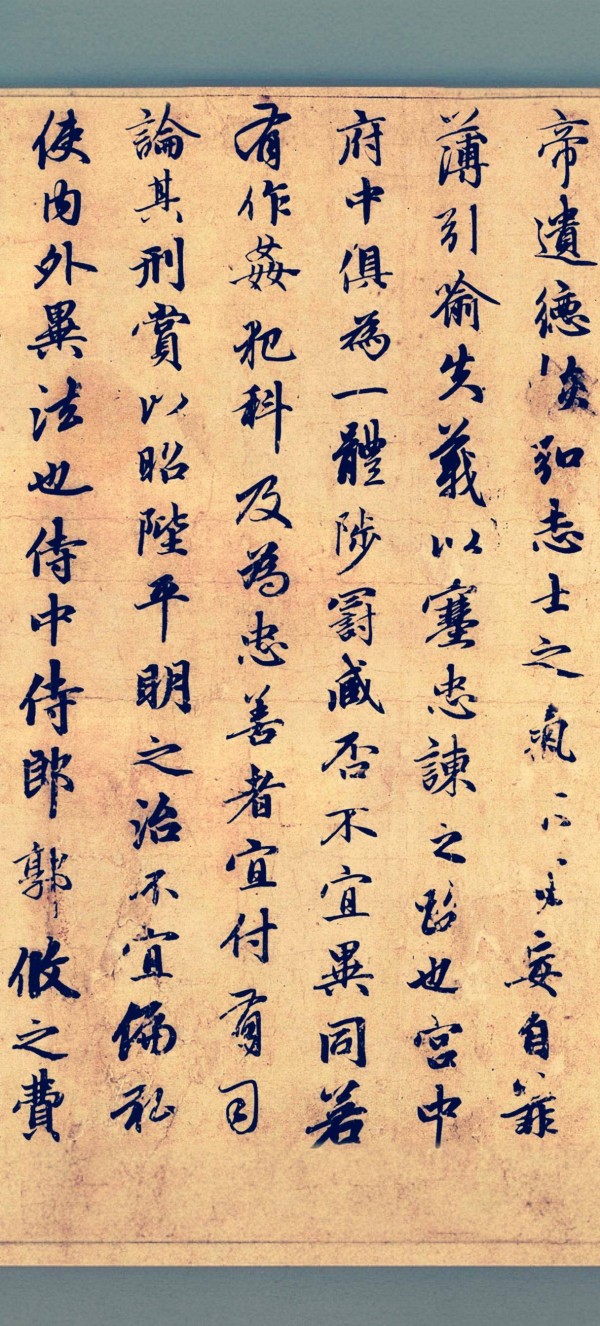 帝遺德恢弘志士之氣妄自菲
薄引喻失義以塞忠諫之路也宮中
府中俱為一體陟罰臧否不宜異同若
有作姦犯科及為忠善者宜付有司
論其刑賞以昭陛平明之治不宜偏私
使內外異法也侍中侍郎郭攸之費